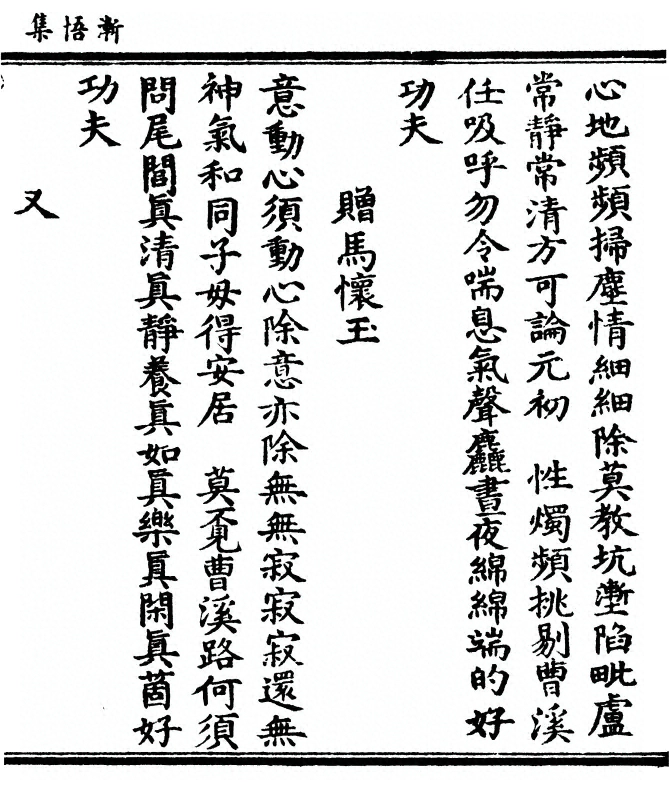 集悟漸
心地頻頻掃塵情細細除莫教坑壍陷毗盧
常靜常清方可論元初　性燭頻挑剔曹溪
任吸呼勿令喘息氣聲麤晝夜綿綿端的好
功夫
贈馬懷玉
意動心須動心除意亦除無無寂寂寂還無
神氣和同子母得安居　莫覓曹溪路何須
問尾閭眞清眞靜養眞如眞樂眞閑眞箇好
功夫
又